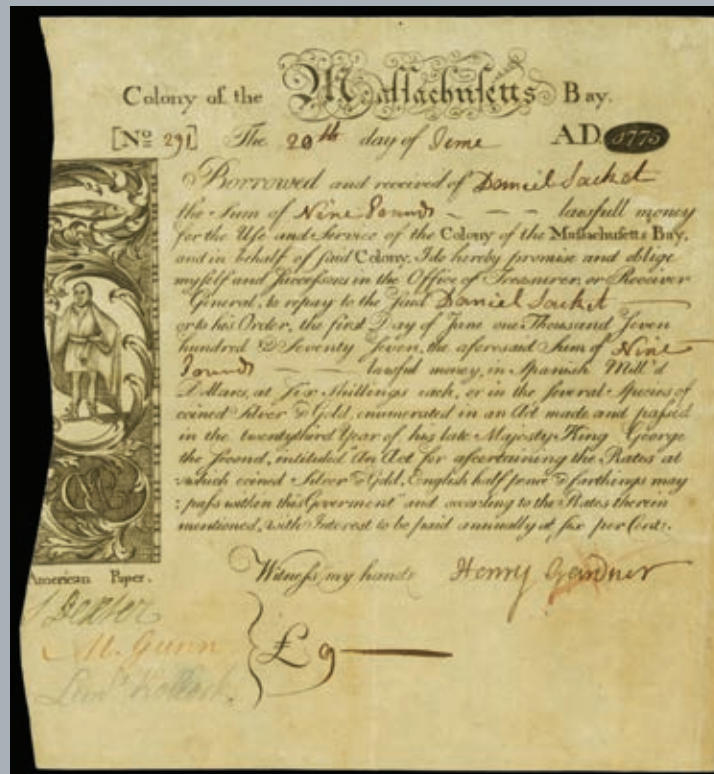 Colony of the Massachusetts Bay.
[No 291] The 20th day of June AD. 1775
Borrowed and received of Daniel Sacket
the Sum of Nine Pounds - - - lawfull money
for the Use and Service of the Colony of the Massachusetts Bay,
and in behalf of said Colony, I do hereby promise and oblige
myself and Successors in the Office of Treasurer, or Receiver
General, to repay to the said Daniel Sacket
or to his Order, the first Day of June one Thousand Seven
hundred & Seventy Seven, the aforesaid Sum of Nine
Pounds lawful money, in Spanish Mill'd
Dollars, at Six Shillings each, or in the several Species of
coined Silver & Gold, enumerated in an Act made and passed
in the twenty third Year of his late Majesty King George
the Second, intitled "An Act for ascertaining the Rates at
which coined Silver & Gold, English half pence & farthings may
pass within this Goverment" and according to the Rates therein
mentioned, with Interest to be paid annually at six per Cent.
American Paper.
Witness my hand Henry Gardner
Dexter
M. Gunn
£9